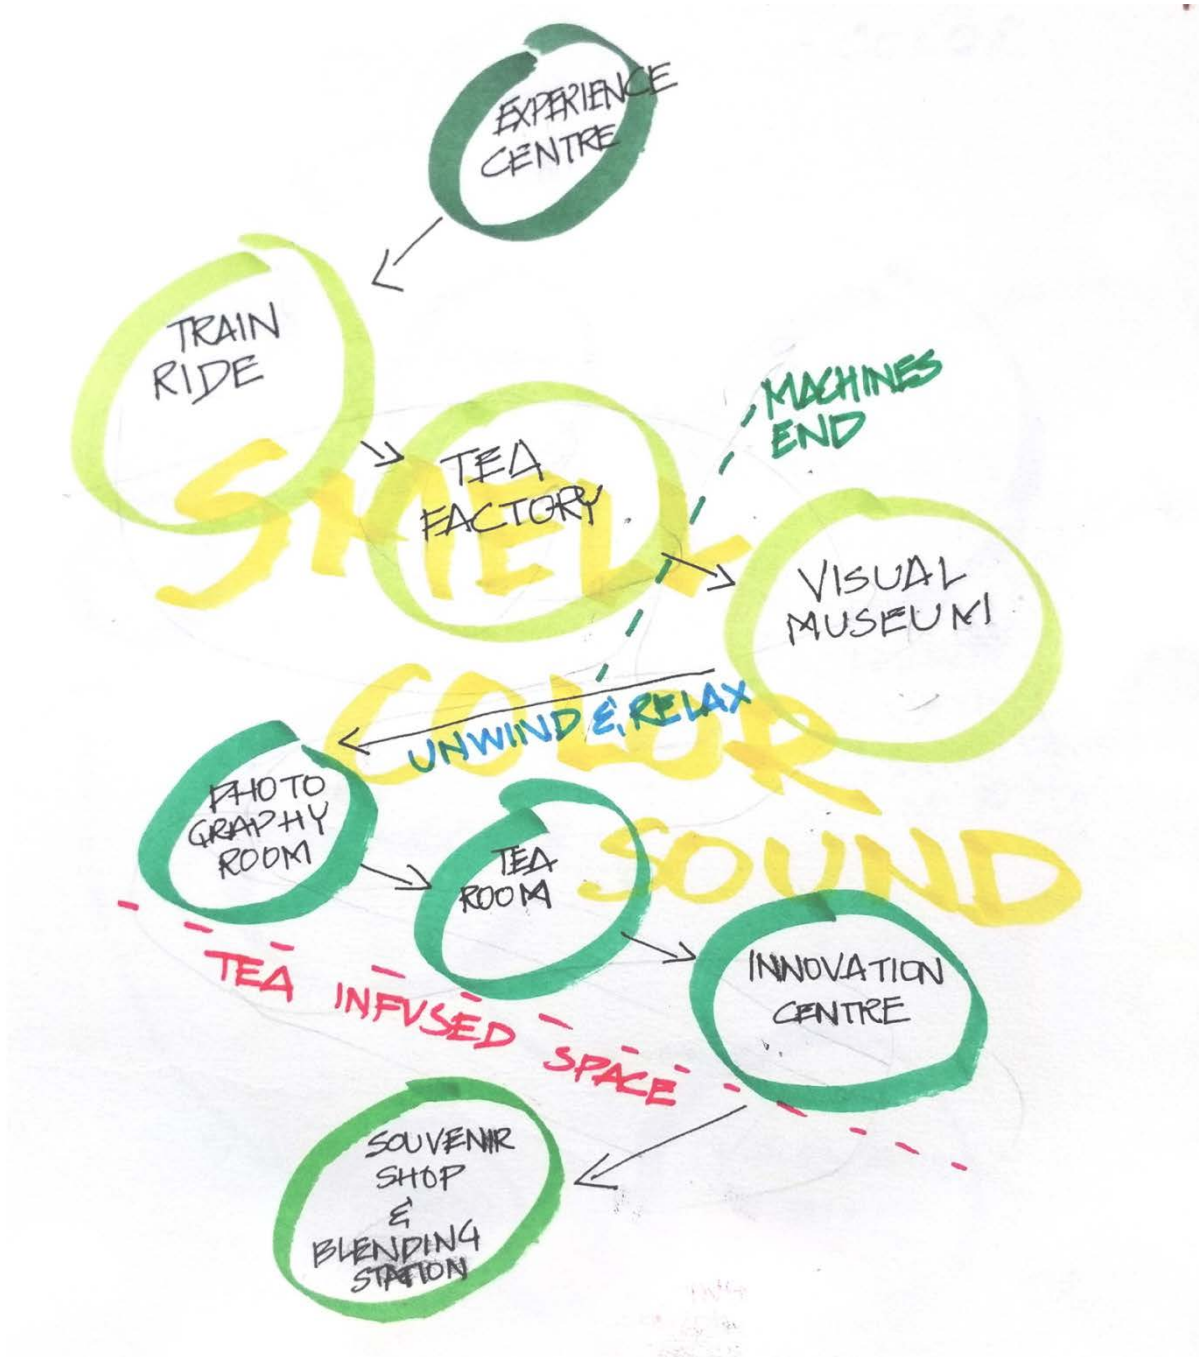 EXPERIENCE
CENTRE
TRAIN
RIDE
MACHINES
END
SMELL
TEA
FACTORY
VISUAL
MUSEUM
COLOR
UNWIND & RELAX
PHOTO
GRAPHY
ROOM
TEA
ROOM
SOUND
INNOVATION
CENTRE
TEA INFUSED SPACE
SOUVENIR
SHOP
&
BLENDING
STATION